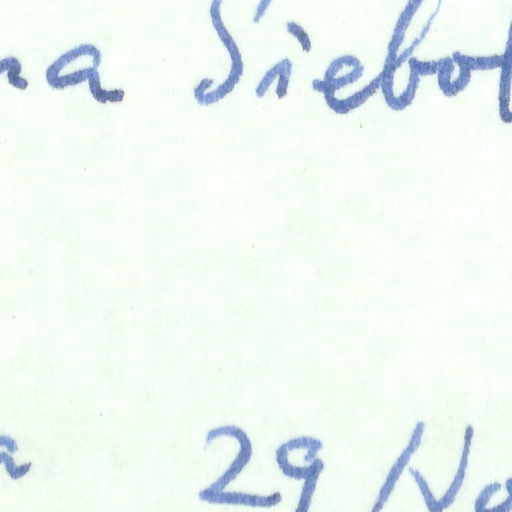 na Siebol
a 29 No